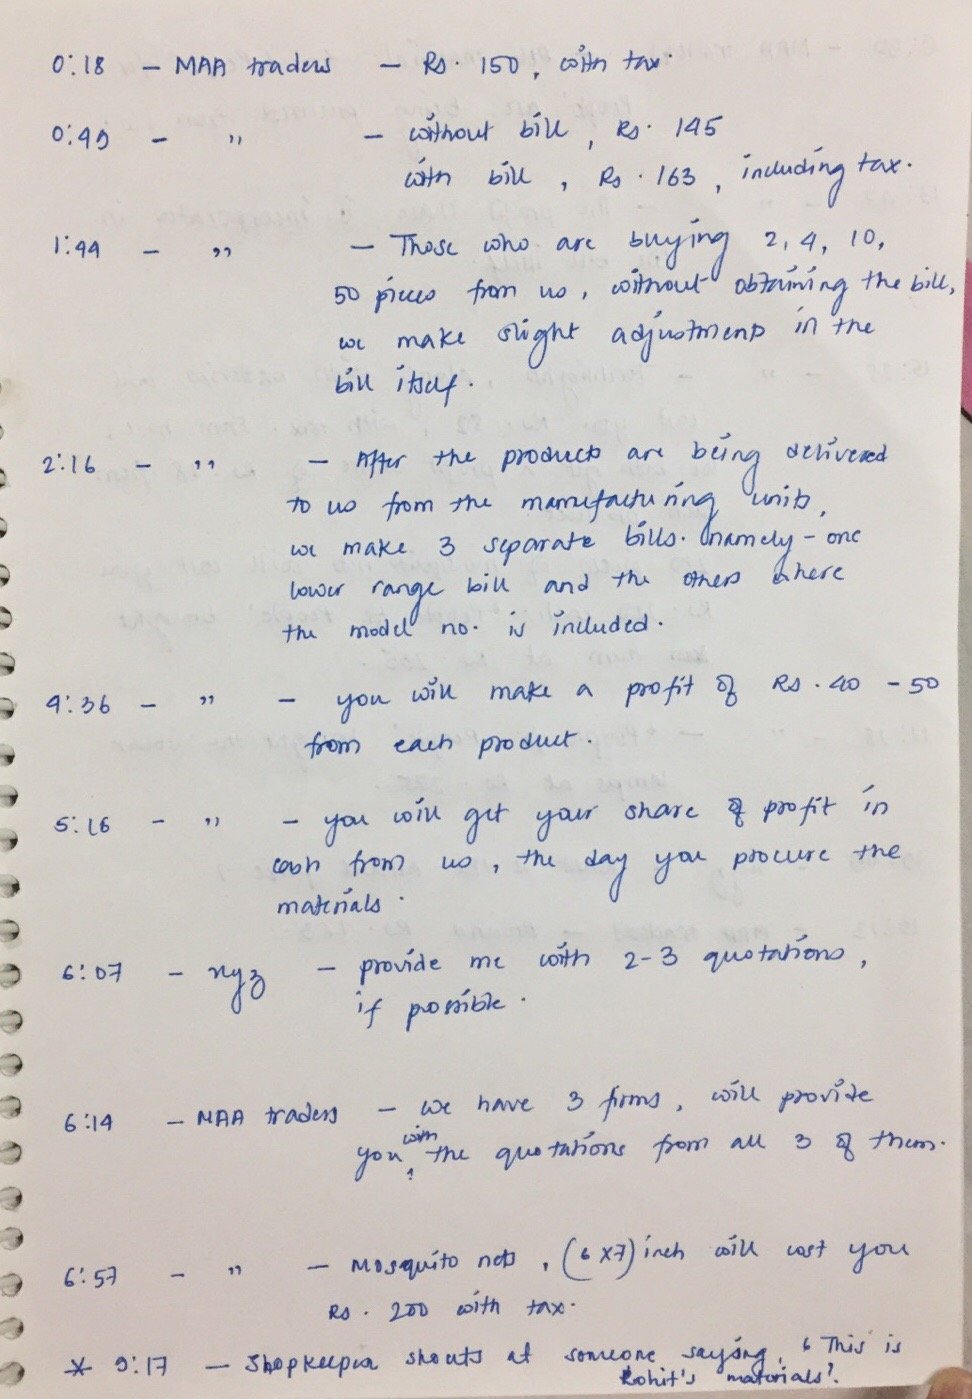 0:18 - MAA traders - Rs. 150, with tax.
0:49 - " - without bill, Rs. 145
with bill, Rs. 163, including tax.
1:44 - " - Those who are buying 2, 4, 10,
50 pieces from us, without obtaining the bill,
we make slight adjustments in the
bill itself.
2:16 - " - After the products are being delivered
to us from the manufacturing units,
we make 3 separate bills. namely - one
lower range bill and the others where
the model no. is included.
4:36 - " - you will make a profit of Rs. 40 - 50
from each product.
5:16 - " - you will get your share of profit in
cash from us, the day you procure the
materials.
6:07 - xyz - provide me with 2-3 quotations,
if possible.
6:14 - MAA traders - we have 3 firms, will provide
you with the quotations from all 3 of them.
6:57 - " - Mosquito nets, (6 x 7) inch will cost you
Rs. 200 with tax.
* 9:17 - Shopkeeper shouts at someone saying, ' This is
Rohit's materials'.